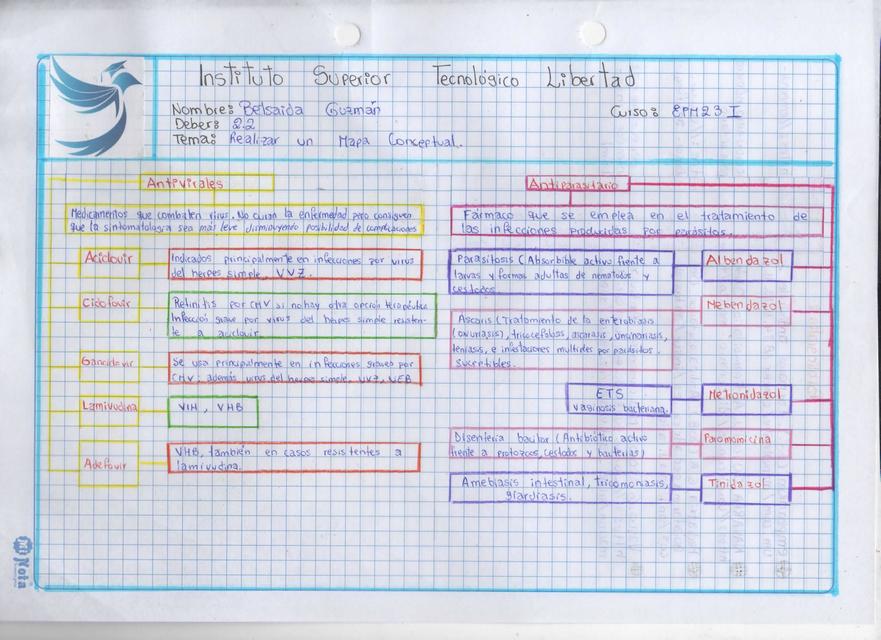 Instituto Superior Tecnológico Libertad
Nombre: Belsaida Guzmán
Curso: EPM23 I
Deber: 2.2
Tema: Realizar un Mapa Conceptual.
Antivirales
Medicamentos que combaten virus. No curan la enfermedad pero consiguen
que la sintomatología sea más leve disminuyendo posibilidad de complicaciones
Aciclovir
Indicados principalmente en infecciones por virus
del herpes simple, VVZ.
Cidofovir
Retinitis por CMV si no hay otra opción terapéutica
Infección grave por virus del herpes simple resisten-
te a aciclovir.
Ganciclovir
Se usa principalmente en infecciones graves por
CMV, además virus del herpes simple, VVZ, VEB
Lamivudina
VIH, VHB
Adefovir
VHB, también en casos resistentes a
lamivudina.
Antiparasitario
Fármaco que se emplea en el tratamiento de
las infecciones producidas por parásitos.
Parasitosis (Absorbible activo frente a
larvas y formas adultas de nematodos y
cestodos.
Albendazol
Mebendazol
Ascaris (Tratamiento de la enterobiasis
(oxuriasis), tricocefalosis, ascariasis,
teniasis, e infestaciones multiples por parásitos.
suceptibles.
ETS
vaginosis bacteriana.
Metronidazol
Disenteria (Antibiótico activo
frente a protozoos, cestodos y bacterias)
Paromomicina
Amebiasis intestinal, tricomoniasis,
giardiasis.
Tinidazol
Nota